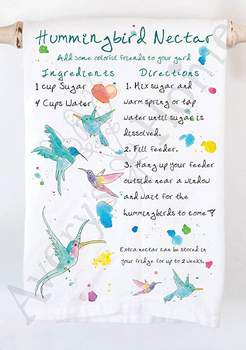 Hummingbird Nectar
Add some colorful friends to your yard
Ingredients
1 cup Sugar
4 Cups Water
Directions
1. Mix sugar and
warm spring or tap
water until sugar is
dissolved.
2. Fill feeder.
3. Hang up your feeder
outside near a window
and wait for the
hummingbirds to come!
Extra nectar can be stored in
your fridge for up to 2 weeks.